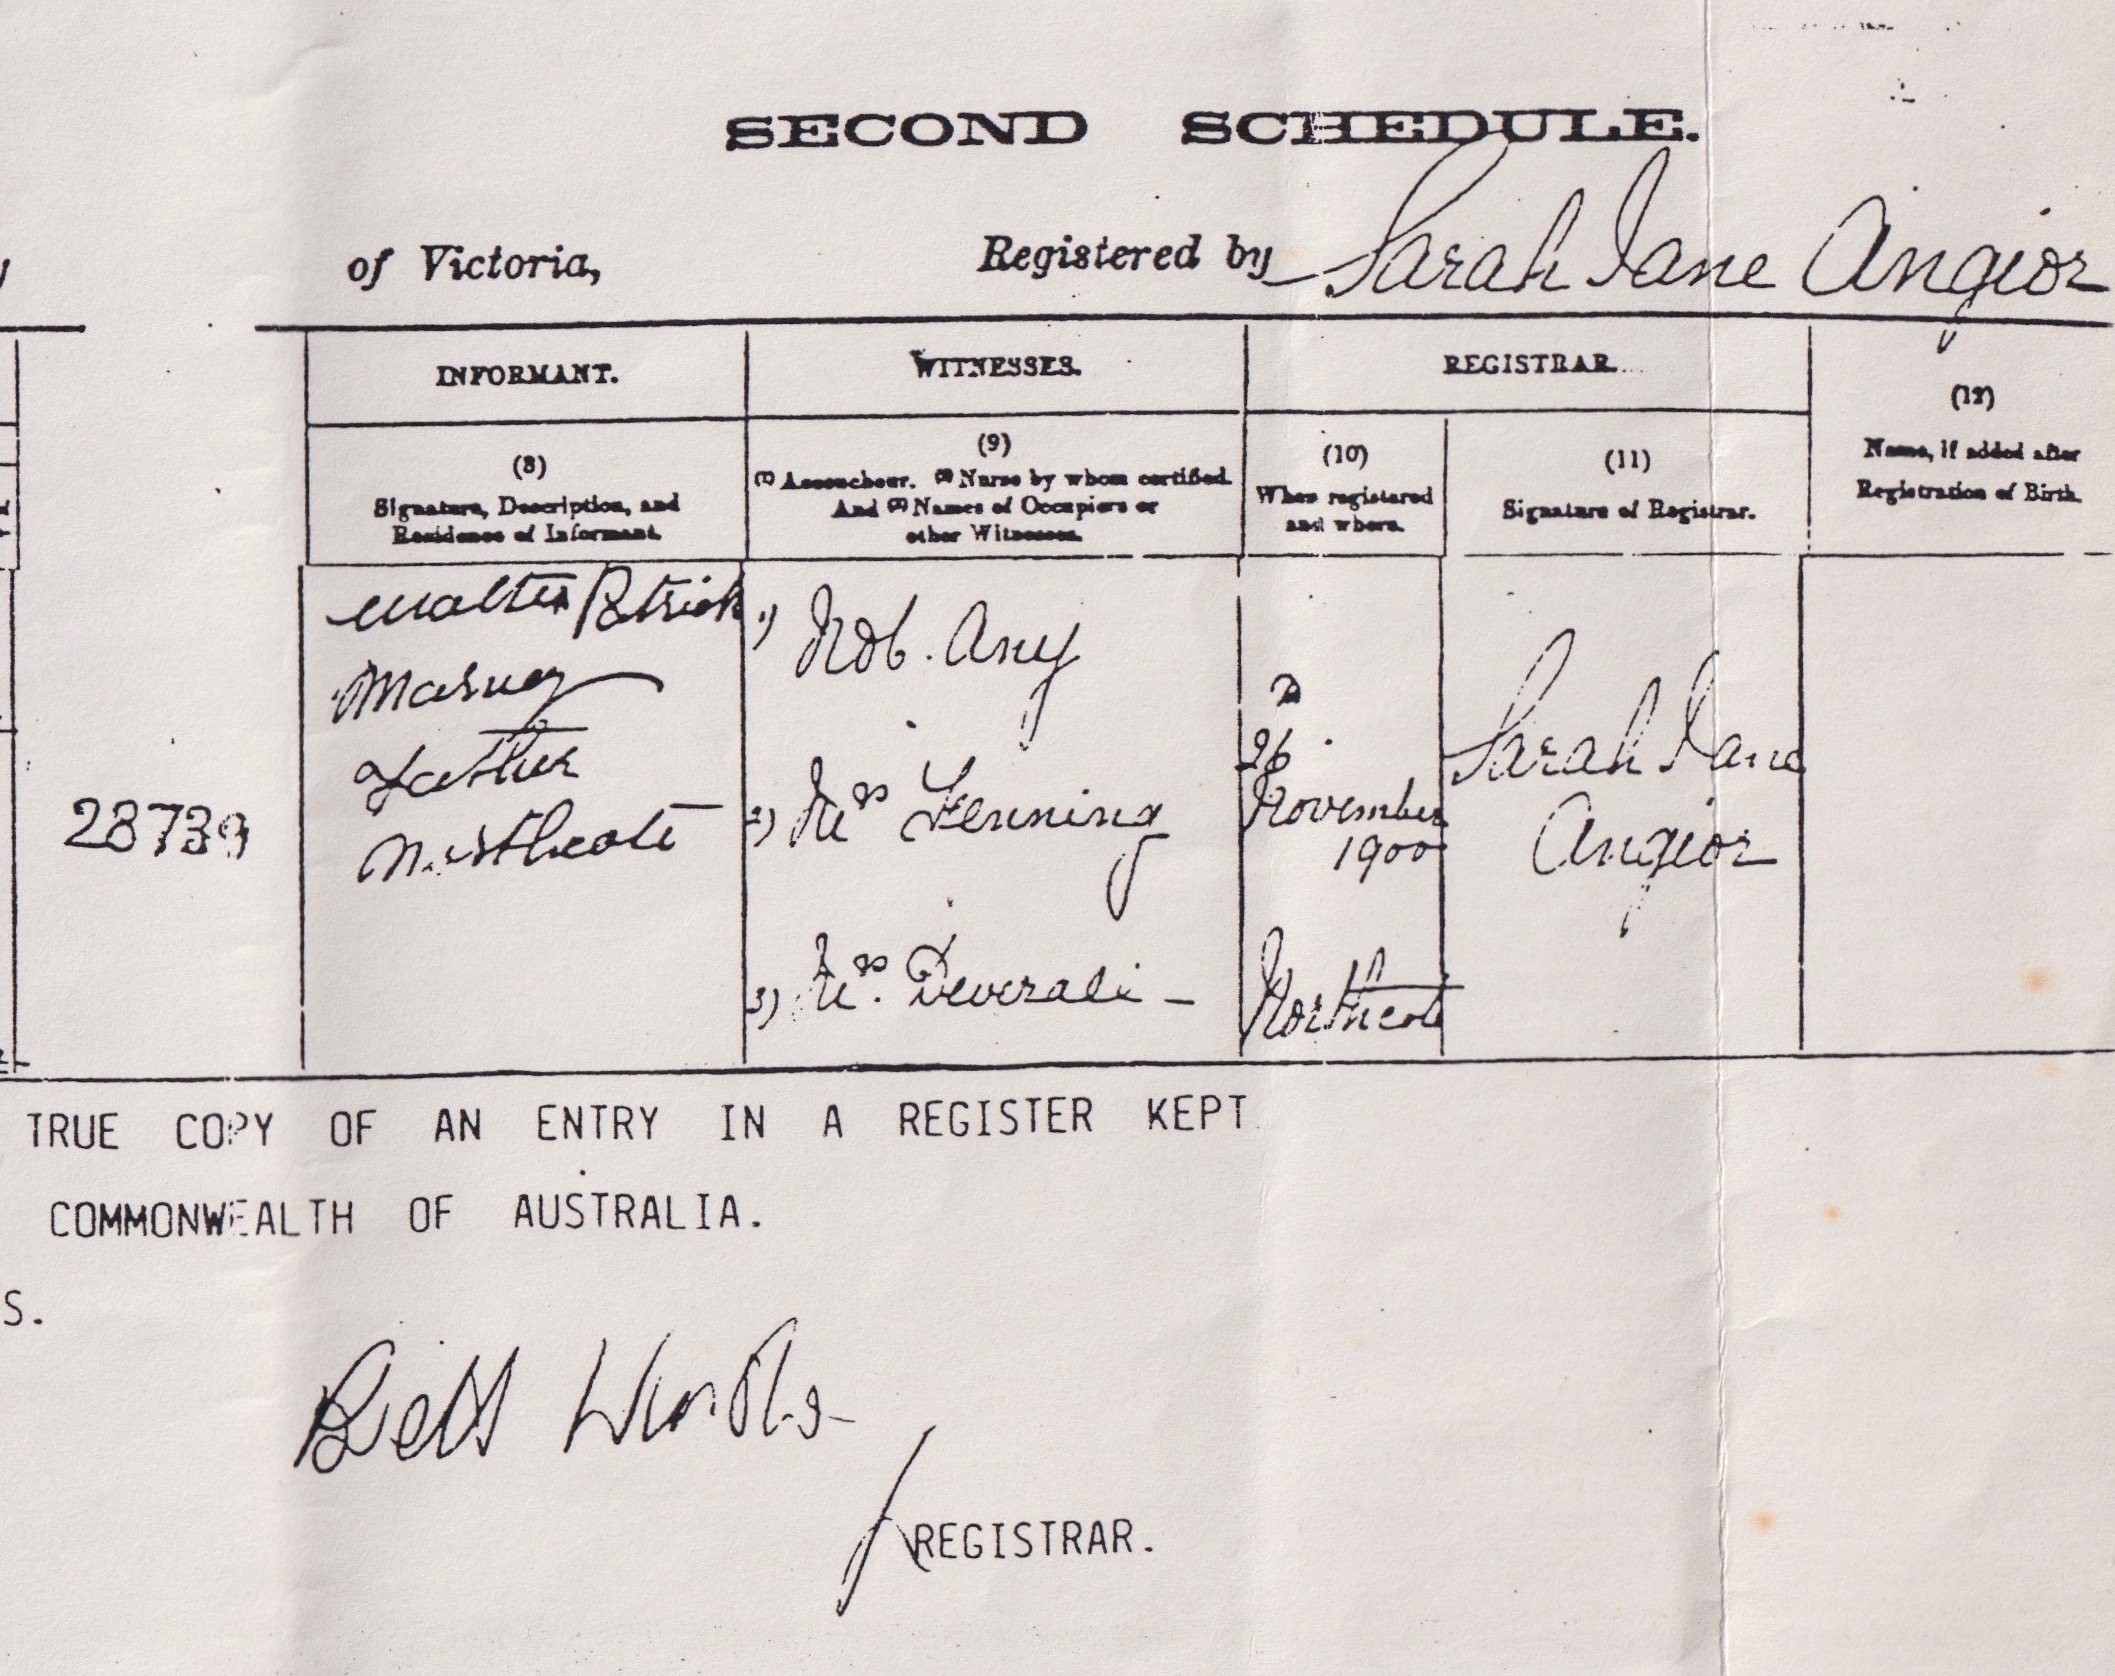 SECOND SCHEDULE.
of Victoria, Registered by Sarah Jane Angior
INFORMANT. WITNESSES. REGISTRAR.
(12)
Name, if added after
Registration of Birth.
(8)
Signature, Description, and
Residence of Informant.
(9)
(1) Accoucheur. (2) Nurse by whom certified.
And (3) Names of Occupiers or
other Witnesses.
(10)
When registered
and where.
(11)
Signature of Registrar.
28739
Walter Patrick
Father
Northcote
1)
2) Mrs Fenning
3) Mrs
26
November
1900
Northcote
Sarah Jane
Angior
TRUE COPY OF AN ENTRY IN A REGISTER KEPT
COMMONWEALTH OF AUSTRALIA.
S.
REGISTRAR.